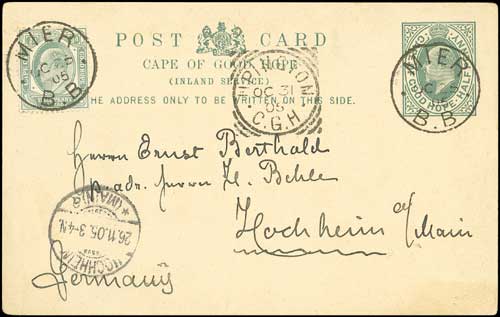 POST CARD
CAPE OF GOOD HOPE
(INLAND SERVICE)
THE ADDRESS ONLY TO BE WRITTEN ON THIS SIDE.
MIER
B.B
MIER
05
B.B
UPINGTON
OC 31
05
C.G.H
Herrn Ernst Berthold
p. adr. Herrn H. Behle
Hochheim a/Main
Germany
HOCHHEIM
26.11.05. 3-4N.
(MAIN)